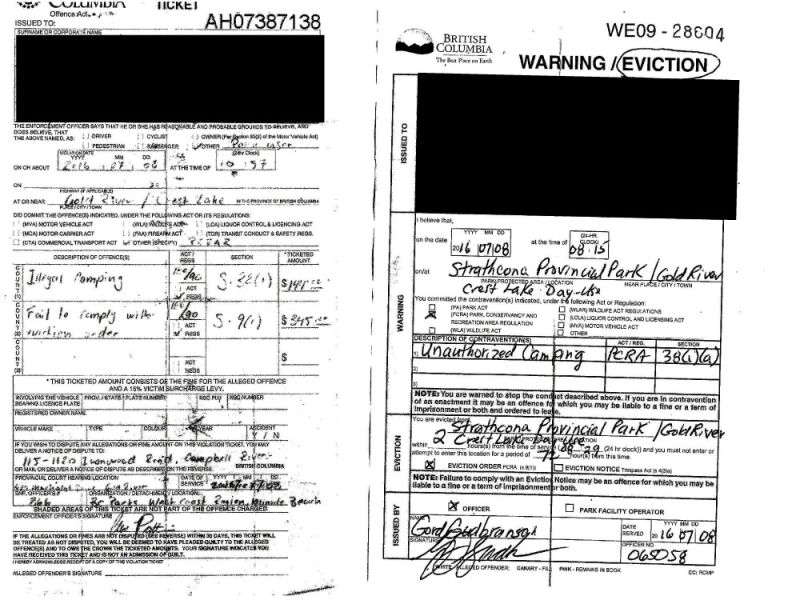 COLUMBIA TICKET
Offence Act
ISSUED TO: AH07387138
SURNAME OR CORPORATE NAME
THE ENFORCEMENT OFFICER SAYS THAT HE OR SHE HAS REASONABLE AND PROBABLE GROUNDS TO BELIEVE, AND
DOES BELIEVE, THAT
THE ABOVE NAMED, AS: DRIVER CYCLIST OWNER (Per Section 83(2) of the Motor Vehicle Act)
PEDESTRIAN PASSENGER OTHER
YYYY MM DD (24hr Clock)
ON OR ABOUT 2016 AT THE TIME OF
ON
HIGHWAY (IF APPLICABLE)
AT OR NEAR Gold River / Crest Lake IN THE PROVINCE OF BRITISH COLUMBIA
PLACE/CITY/TOWN
DID COMMIT THE OFFENCE(S) INDICATED, UNDER THE FOLLOWING ACT OR ITS REGULATIONS:
(MVA) MOTOR VEHICLE ACT (WLA) ACT (LCA) LIQUOR CONTROL & LICENCING ACT
(MCA) MOTOR CARRIER ACT (FAA) FIREARM ACT (TCR) TRANSIT CONDUCT & SAFETY REGS.
(CTA) COMMERCIAL TRANSPORT ACT OTHER (SPECIFY)
DESCRIPTION OF OFFENCE(S) ACT / REGS SECTION *TICKETED AMOUNT
COUNT (1) Illegal Camping ACT REGS S. 38(1) $
COUNT (2) Fail to comply with eviction order ACT REGS S. 9(1) $ 345.00
COUNT (3) ACT REGS $
* THIS TICKETED AMOUNT CONSISTS OF THE FINE FOR THE ALLEGED OFFENCE
AND A 15% VICTIM SURCHARGE LEVY.
INVOLVING THE VEHICLE PROV./STATE PLATE NUMBER NSC NUMBER
BEARING LICENCE PLATE
REGISTERED OWNER NAME
VEHICLE MAKE TYPE COLOUR YEAR ACCIDENT
Y / N
IF YOU WISH TO DISPUTE ANY ALLEGATIONS OR FINE AMOUNT ON THIS VIOLATION TICKET, YOU MAY
DELIVER A NOTICE OF DISPUTE TO:
115-1180 Ironwood Road, Campbell River
BRITISH COLUMBIA
OR MAIL OR DELIVER A NOTICE OF DISPUTE AS DESCRIBED ON THE REVERSE.
PROVINCIAL COURT HEARING LOCATION DATE OF SERVICE
ENF. OFFICER'S ORGANIZATION / DETACHMENT / LOCATION
Bc Parks West Coast Region
SHADED AREAS OF THIS TICKET ARE NOT PART OF THE OFFENCE CHARGED
ENFORCEMENT OFFICER'S SIGNATURE
IF THE ALLEGATIONS OR FINES ARE NOT DISPUTED (SEE REVERSE) WITHIN 30 DAYS, THIS TICKET WILL
BE TREATED AS NOT DISPUTED, YOU WILL BE DEEMED TO HAVE PLEADED GUILTY TO THE ALLEGED
OFFENCE(S) AND TO OWE THE CROWN THE TICKETED AMOUNTS. YOUR SIGNATURE INDICATES YOU
HAVE RECEIVED THIS TICKET AND IS NOT AN ADMISSION OF GUILT.
I HEREBY ACKNOWLEDGE RECEIPT OF A COPY OF THIS VIOLATION TICKET
ALLEGED OFFENDER'S SIGNATURE
BRITISH
COLUMBIA
The Best Place on Earth
WE09 - 28604
WARNING / EVICTION
ISSUED TO
I believe that,
YYYY MM DD (24-HR. CLOCK)
on the date 2016 07 08 at the time of 08:15
on/at Strathcona Provincial Park / Gold River
PARK/PROTECTED AREA/LOCATION NEAR PLACE / CITY / TOWN
Crest Lake - Day-Use
You committed the contravention(s) indicated, under the following Act or Regulation:
(PA) PARK ACT (WLAR) WILDLIFE ACT REGULATIONS
(PCRA) PARK, CONSERVANCY AND (LCLA) LIQUOR CONTROL AND LICENSING ACT
RECREATION AREA REGULATION (MVA) MOTOR VEHICLE ACT
(WLA) WILDLIFE ACT OTHER
WARNING
DESCRIPTION OF CONTRAVENTION(S) ACT / REG. SECTION
1) Unauthorized Camping PCRA 38(1)(a)
2)
3)
NOTE: You are warned to stop the conduct described above. If you are in contravention
of an enactment it may be an offence for which you may be liable to a fine or a term of
imprisonment or both and ordered to leave.
EVICTION
You are evicted from Strathcona Provincial Park / Gold River
Crest Lake Day-Use
within 2 hour(s) from the time of service (24 hr clock) and you must not enter or
attempt to enter this location for a period of 72 hours from this time.
EVICTION ORDER PCRA (s.9(1)) EVICTION NOTICE Trespass Act (s.4(2)(a))
NOTE: Failure to comply with an Eviction Notice may be an offence for which you may be
liable to a fine or a term of imprisonment or both.
ISSUED BY
OFFICER PARK FACILITY OPERATOR
NAME
Gord Gudbranson
DATE SERVED YYYY MM DD 2016 07 08
SIGNATURE
OFFICER NO.
065058
WHITE - ALLEGED OFFENDER; CANARY - FILE PINK - REMAINS IN BOOK CC: RCMP